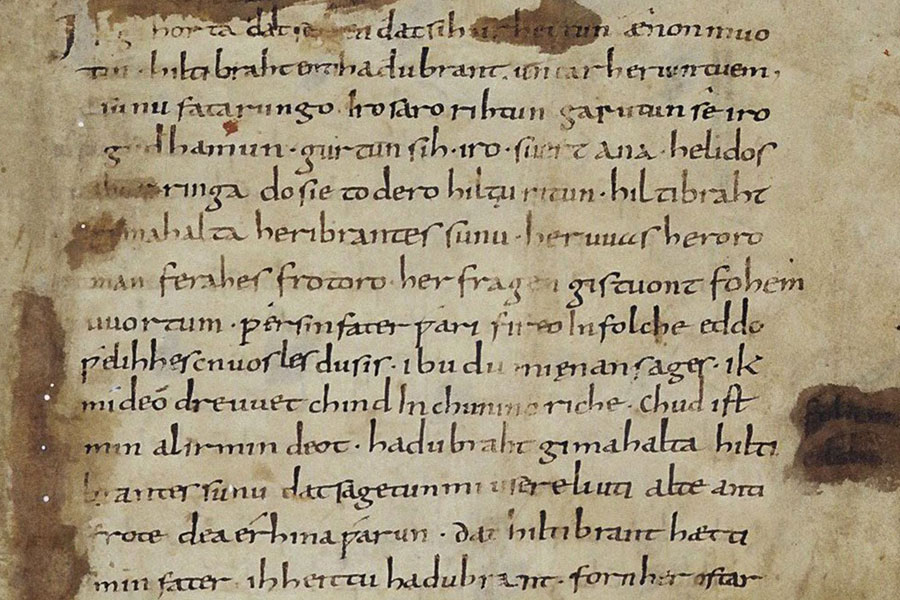 horta dat dat sih ænon muo
tin · hiltibraht enti hadubrant · untar heriun tuem ·
sunu fatarungo · Iro saro rihtun garutun sê iro
gudhamun · gurtun sih · iro · suert ana · helidos
ringa do sie to dero hiltiu ritun · hiltibraht
gimahalta heribrantes sunu · her uuas heroro
man ferahes frotoro · her fragen gistuont fohem
uuortum · ƿer sin fater ƿari fireo In folche eddo
ƿelihhes cnuosles du sis · ibu du mi ęnan sages · ik
mi deo dre uuet chind In chunincriche · Chud ist
min al irmin deot · hadubraht gimahalta hilti
brantes sunu dat sagetun mi usere liuti alte anti
frote dea érhina ƿarun · dat hiltibrant hætti
min fater · ih heittu hadubrant · forn her ostar